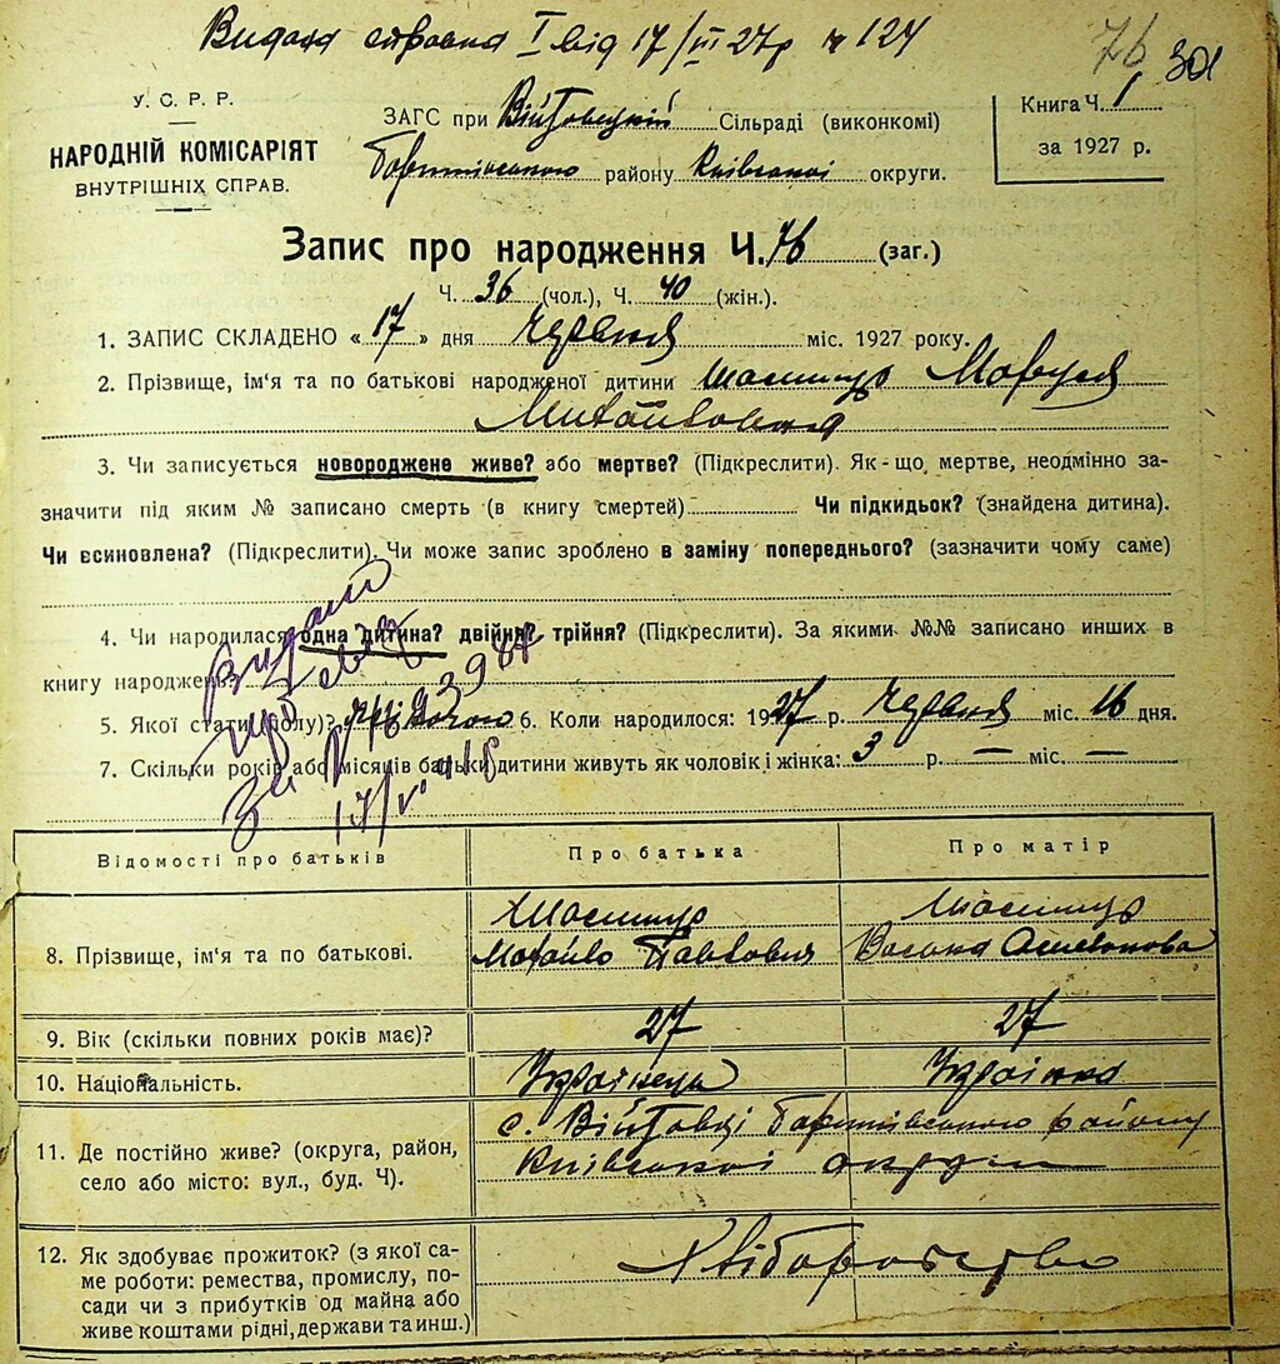 Видана справка I від 17/III 27р № 124
76 301
У. С. Р. Р.
НАРОДНІЙ КОМІСАРІЯТ
ВНУТРІШНІХ СПРАВ.
ЗАГС при Війтовецкій Сільраді (виконкомі)
району Київської округи.
Книга Ч. 1
за 1927 р.
Запис про народження Ч. 76 (заг.)
Ч. 36 (чол.), Ч. 40 (жін.).
1. ЗАПИС СКЛАДЕНО « 17 » дня Червня міс. 1927 року.
2. Прізвище, ім'я та по батькові народженої дитини
Михайловна
3. Чи записується новороджене живе? або мертве? (Підкреслити). Як-що мертве, неодмінно за-
значити під яким № записано смерть (в книгу смертей) Чи підкидьок? (знайдена дитина).
Чи всиновлена? (Підкреслити). Чи може запис зроблено в заміну попереднього? (зазначити чому саме)
4. Чи народилася одна дитина? двійня? трійня? (Підкреслити). За якими №№ записано инших в
книгу народжень?
5. Якої стати (полу)? Жіночою 6. Коли народилося: 1927 р. Червня міс. 16 дня.
7. Скільки років або місяців батьки дитини живуть як чоловік і жінка: 3 р. — міс. —
Відомості про батьків Про батька Про матір
8. Прізвище, ім'я та по батькові.
Михайло Павлович
9. Вік (скільки повних років має)? 27 27
10. Національність. Українець Українка
11. Де постійно живе? (округа, район,
село або місто: вул., буд. Ч).
с. Війтовці району
Київської округи
12. Як здобуває прожиток? (з якої са-
ме роботи: ремества, промислу, по-
сади чи з прибутків од майна або
живе коштами рідні, держави та инш.)
Хліборобство